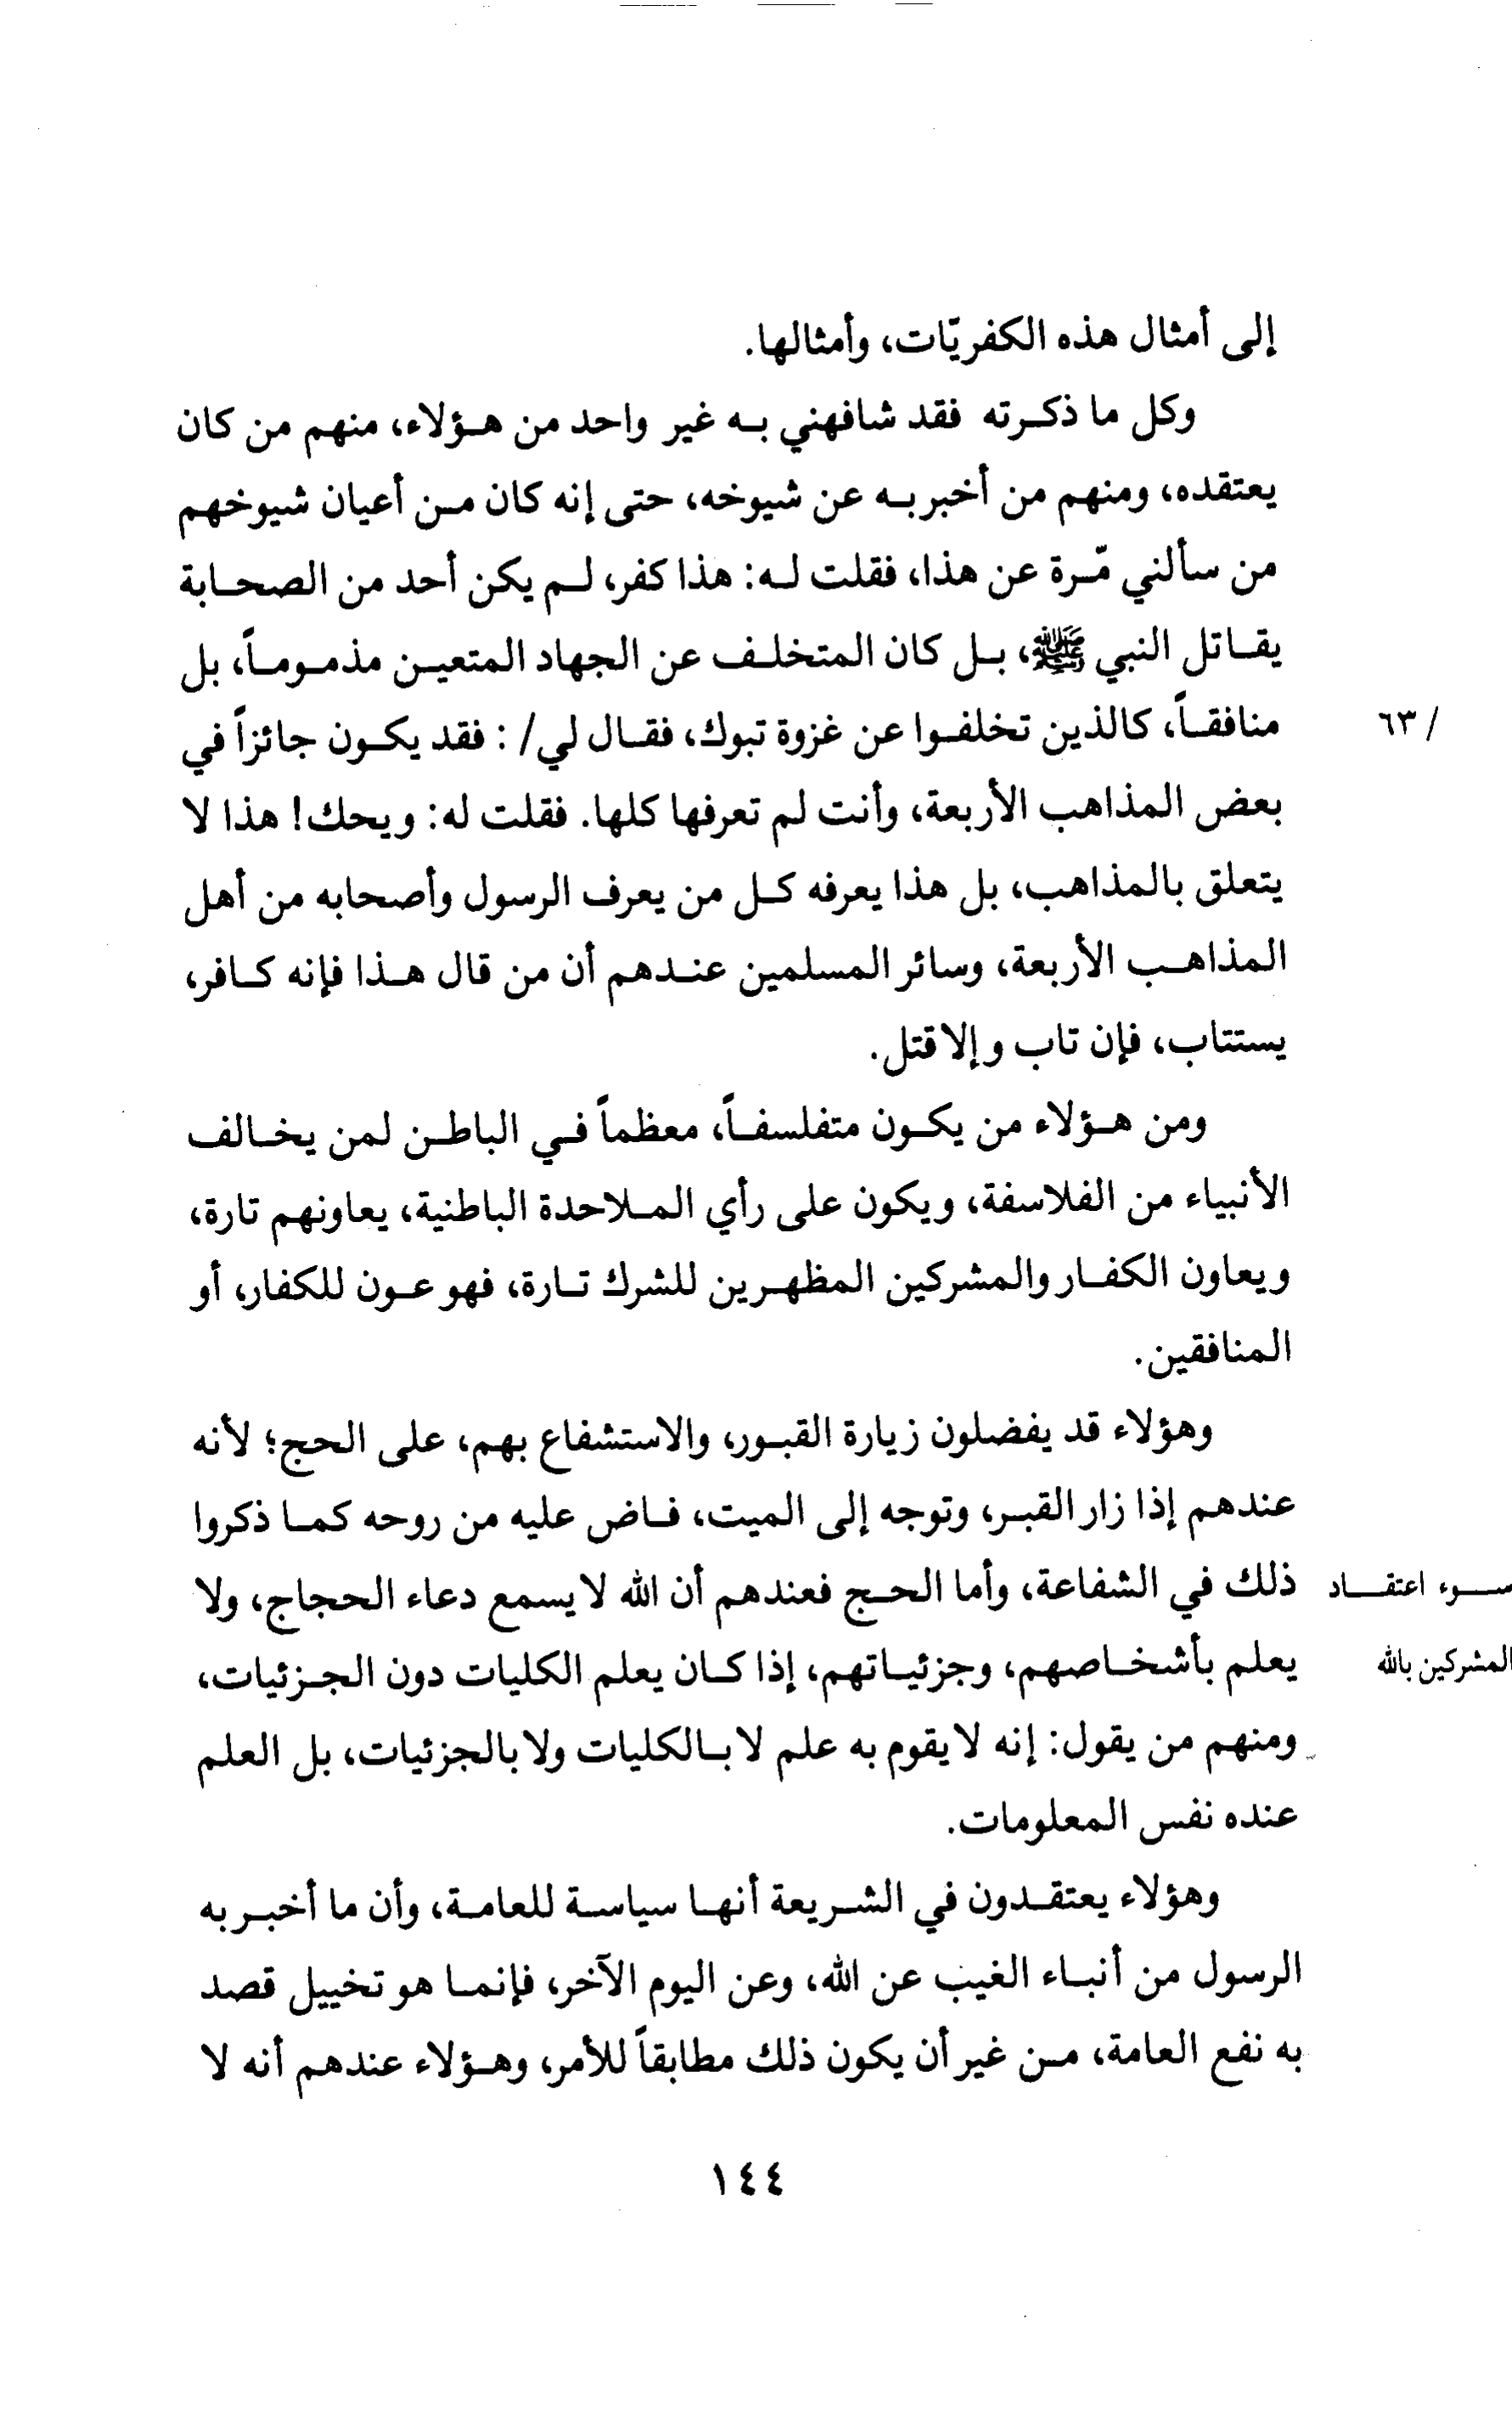 إلى أمثال هذه الكفريّات، وأمثالها.
وكل ما ذكرته فقد شافهني به غير واحد من هؤلاء، منهم من كان
يعتقده، ومنهم من أخبر به عن شيوخه، حتى إنه كان من أعيان شيوخهم
من سألني مّرة عن هذا، فقلت له: هذا كفر، لم يكن أحد من الصحابة
يقاتل النبي ﷺ، بل كان المتخلف عن الجهاد المتعين مذموماً، بل
منافقاً، كالذين تخلفوا عن غزوة تبوك، فقال لي/ : فقد يكون جائزاً في
/ ٦٣
بعض المذاهب الأربعة، وأنت لم تعرفها كلها. فقلت له: ويحك! هذا لا
يتعلق بالمذاهب، بل هذا يعرفه كل من يعرف الرسول وأصحابه من أهل
المذاهب الأربعة، وسائر المسلمين عندهم أن من قال هذا فإنه كافر،
يستتاب، فإن تاب وإلا قتل.
ومن هؤلاء من يكون متفلسفاً، معظماً في الباطن لمن يخالف
الأنبياء من الفلاسفة، ويكون على رأي الملاحدة الباطنية، يعاونهم تارة،
ويعاون الكفار والمشركين المظهرين للشرك تارة، فهو عون للكفار، أو
المنافقين.
وهؤلاء قد يفضلون زيارة القبور، والاستشفاع بهم، على الحج؛ لأنه
عندهم إذا زار القبر، وتوجه إلى الميت، فاض عليه من روحه كما ذكروا
ذلك في الشفاعة، وأما الحج فعندهم أن الله لا يسمع دعاء الحجاج، ولا
سوء اعتقاد
يعلم بأشخاصهم، وجزئياتهم، إذا كان يعلم الكليات دون الجزئيات،
المشركين بالله
ومنهم من يقول: إنه لا يقوم به علم لا بالكليات ولا بالجزئيات، بل العلم
عنده نفس المعلومات.
وهؤلاء يعتقدون في الشريعة أنها سياسة للعامة، وأن ما أخبر به
الرسول من أنباء الغيب عن الله، وعن اليوم الآخر، فإنما هو تخييل قصد
به نفع العامة، من غير أن يكون ذلك مطابقاً للأمر، وهؤلاء عندهم أنه لا
١٤٤